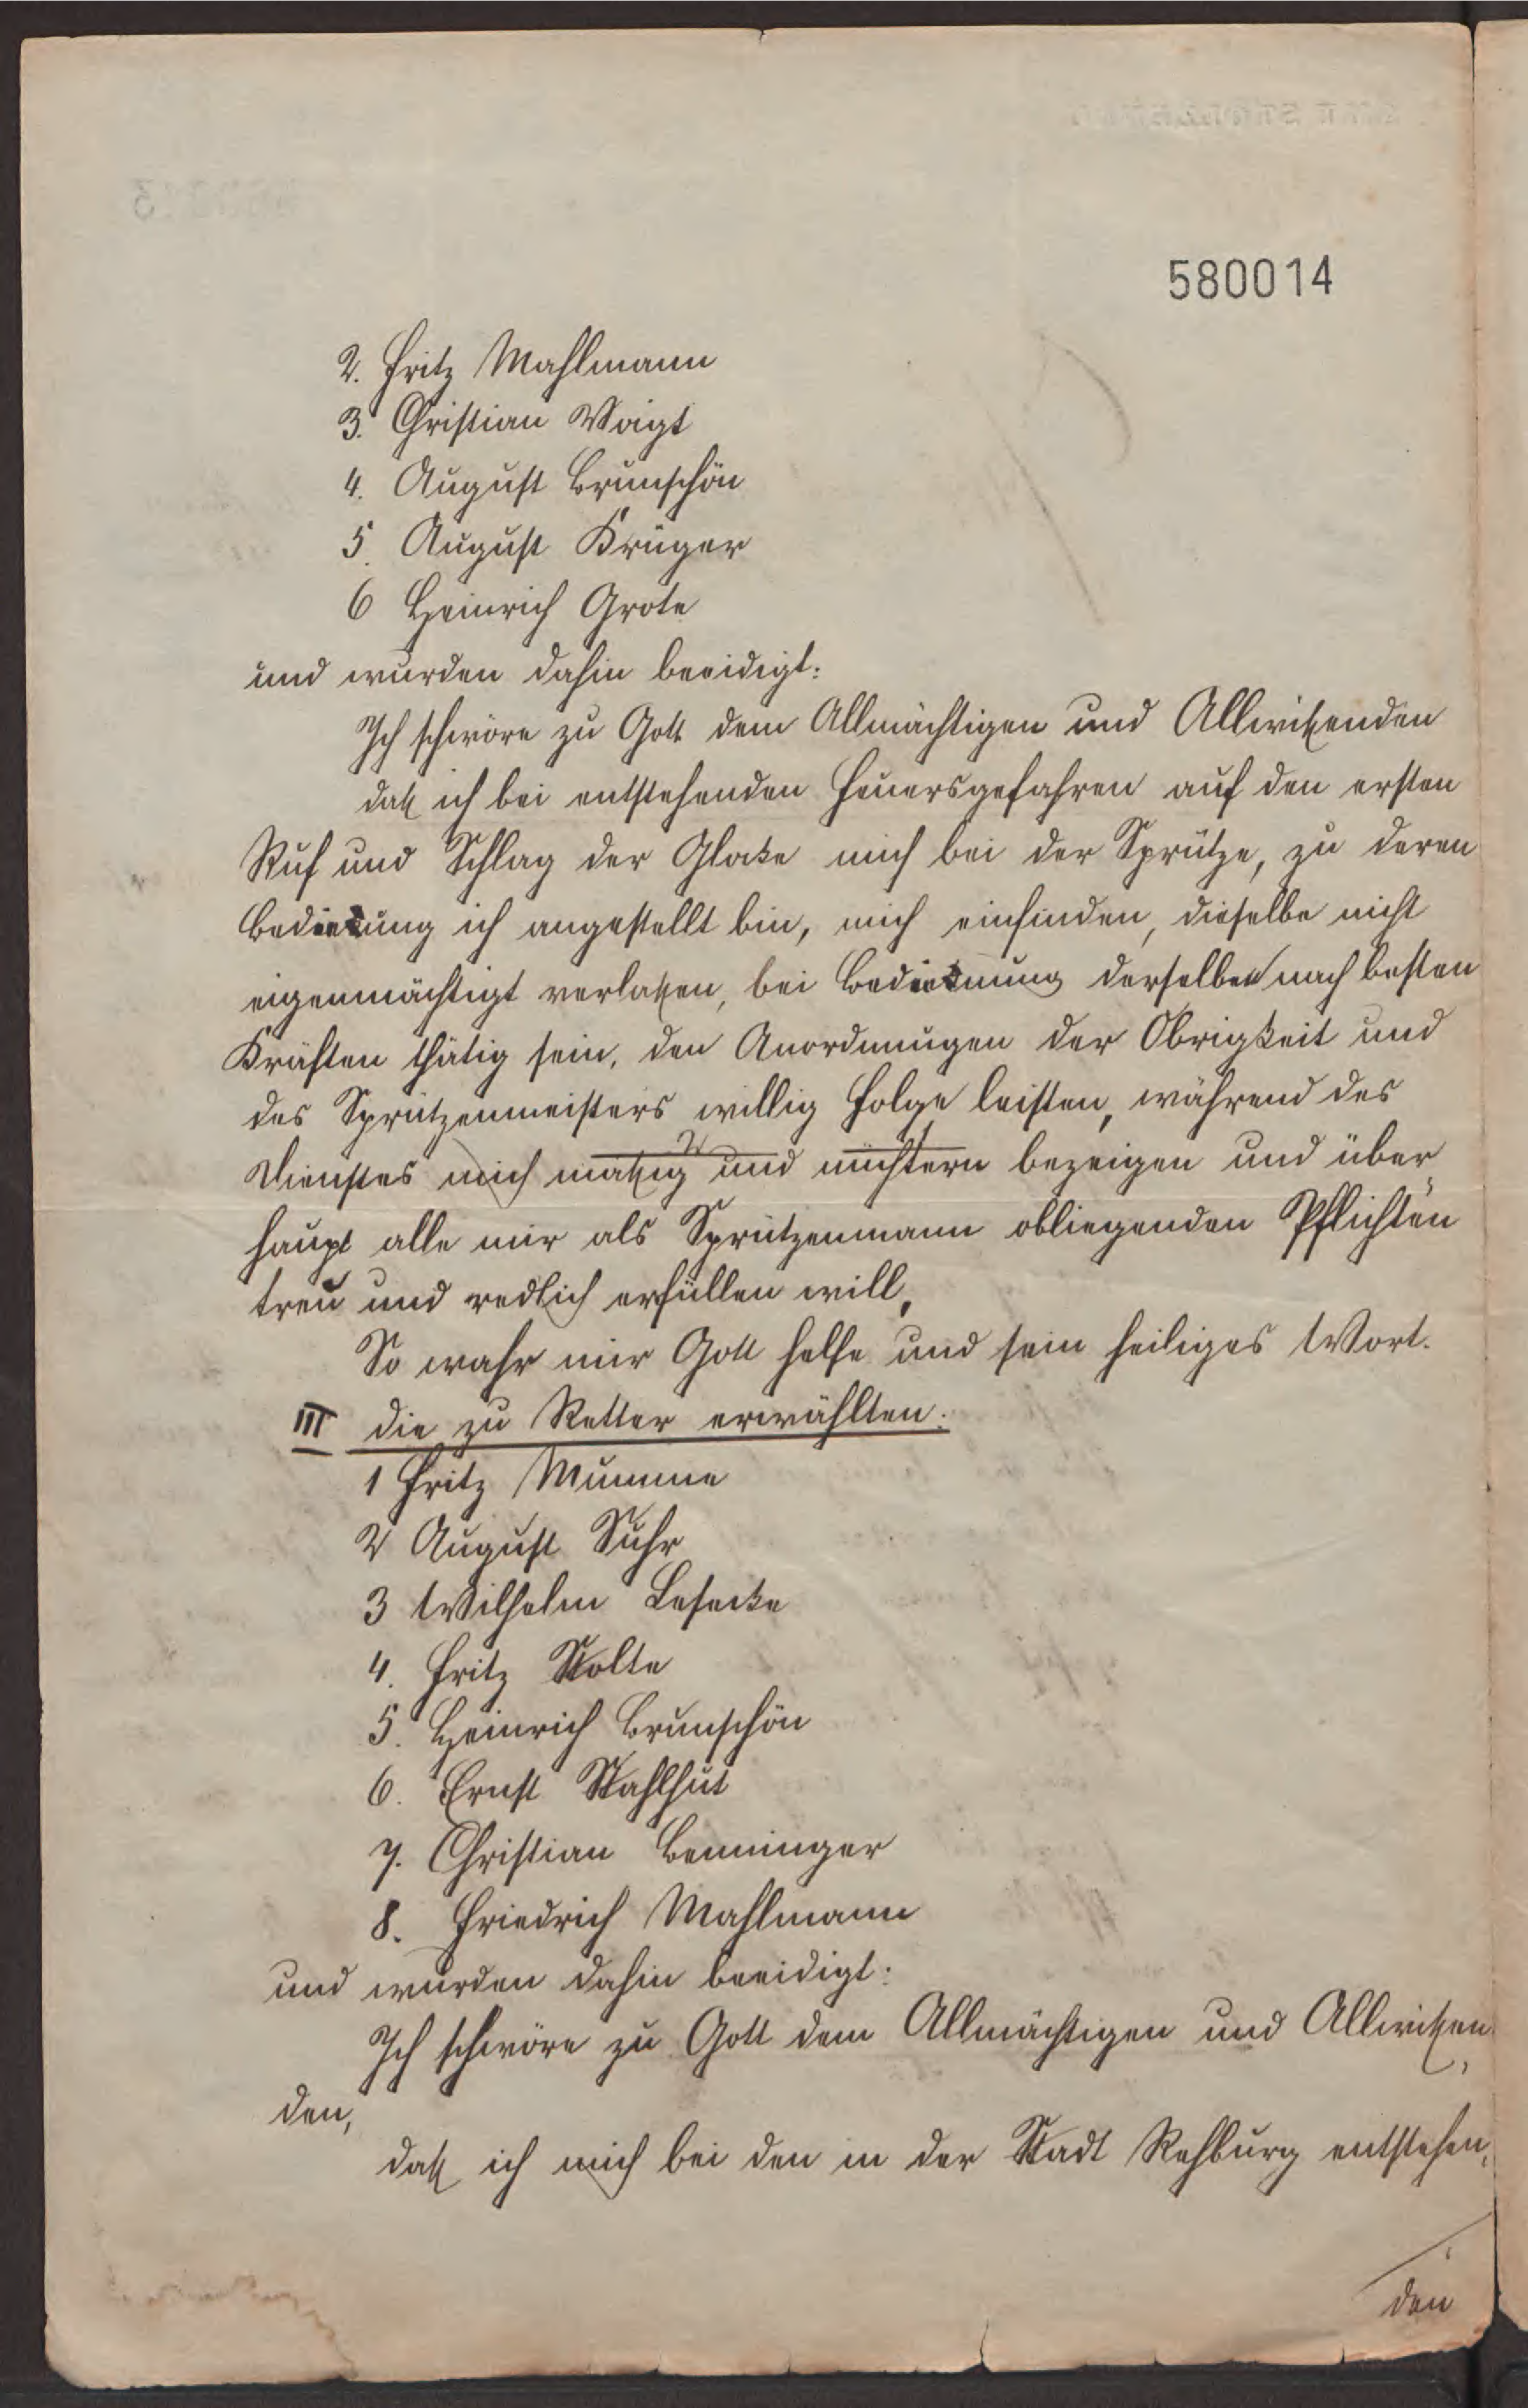 580014
2. Fritz Mahlmann
3. Christian Voigt
4. August Brunschön
5. August Krüger
6 Heinrich Grote
und wurden dahin beeidigt:
Ich schwöre zu Gott dem Allmächtigen und Allwißenden
daß ich bei entstehenden Feuersgefahren auf den ersten
Ruf und Schlag der Glocke mich bei der Sprütze, zu deren
Bedienung ich angestellt bin, mich einfinden, dieselbe nicht
eigenmächtigt verlaßen, bei Bedienung derselben nach besten
Kräften thätig sein, den Anordnungen der Obrigkeit und
des Sprützenmeisters willig Folge leisten, während des
2 1
Dienstes mich mäßig und nüchtern bezeigen und über
haupt alle mir als Sprützenmann obliegenden Pflichten
treu und redlich erfüllen will,
So wahr mir Gott helfe und sein heiliges Wort.
III die zu Retter erwählten:
1 Fritz Mumme
2 August Suhr
3 Wilhelm Lesecke
4. Fritz Nolte
5. Heinrich Brunschön
6. Ernst Stahlhut
7. Christian Benninger
8. Friedrich Mahlmann
und wurden dahin beeidigt:
Ich schwöre zu Gott dem Allmächtigen und Allwißen
den,
daß ich mich bei den in der Stadt Rehburg entstehen,
den